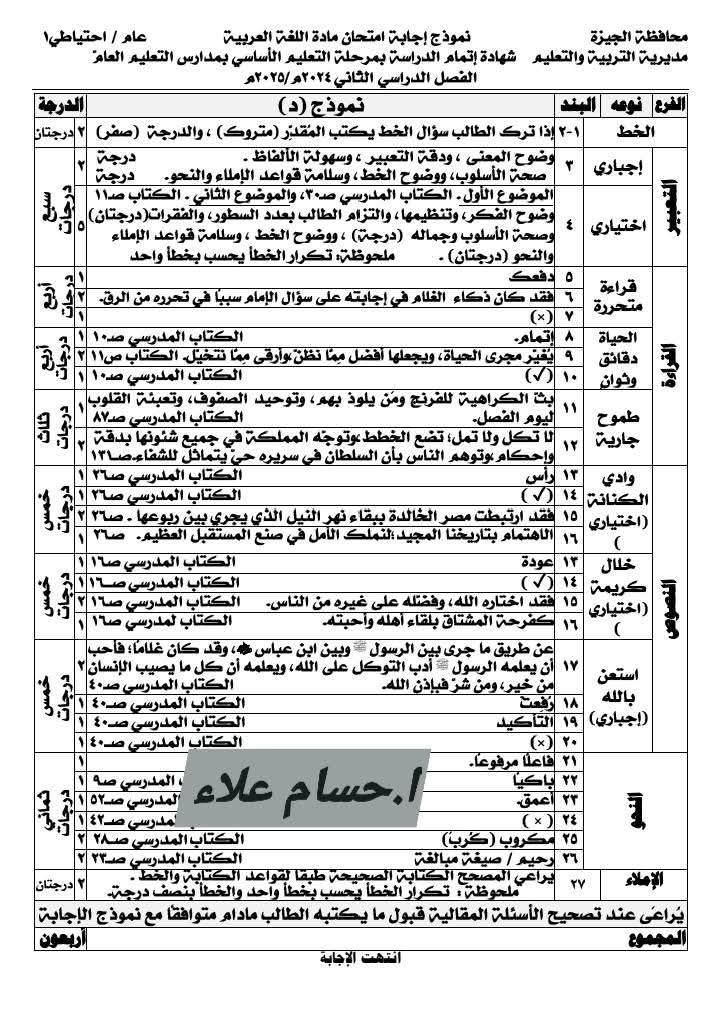 محافظة الجيزة نموذج إجابة امتحان مادة اللغة العربية عام / احتياطي١
مديرية التربية والتعليم شهادة إتمام الدراسة بمرحلة التعليم الأساسي بمدارس التعليم العامّ
الفصل الدراسي الثاني ٢٠٢٤م/٢٠٢٥م
الفرع نوعه البند نموذج (د) الدرجة
الخط ١-٢ إذا ترك الطالب سؤال الخط يكتب المُقدِّر (متروك) ، والدرجة (صفر) ٢ درجتان
التعبير إجباري ٣ وضوح المعنى ، ودقة التعبير ، وسهولة الألفاظ . درجة ٢ سبع درجات
صحة الأسلوب، ووضوح الخط، وسلامة قواعد الإملاء والنحو. درجة
اختياري ٤ الموضوع الأول . الكتاب المدرسي صـ٣٠، والموضوع الثاني . الكتاب صـ١١ ٥
وضوح الفكر، وتنظيمها، والتزام الطالب بعدد السطور، والفقرات(درجتان)
وصحة الأسلوب وجماله (درجة) ، ووضوح الخط ، وسلامة قواعد الإملاء
والنحو (درجتان) . ملحوظة: تكرار الخطأ يحسب بخطأ واحد
القراءة قراءة متحررة ٥ دفعك ١ أربع درجات
٦ فقد كان ذكاء الغلام في إجابته على سؤال الإمام سببًا في تحرره من الرق. ٢
٧ (×) ١
الحياة دقائق وثوان ٨ إتمام. الكتاب المدرسي صـ١٠ ١ أربع درجات
٩ يُغيّر مجرى الحياة، ويجعلها أفضل مِمَّا نظنّ،وأرقى مِمَّا نتخيَّل. الكتاب ص١١ ٢
١٠ (✓) الكتاب المدرسي صـ١٠ ١
طموح جارية ١١ بثَّ الكراهية للفرنج ومَن يلوذ بهم، وتوحيد الصفوف، وتعبئة القلوب ١ ثلاث درجات
ليوم الفصل. الكتاب المدرسي صـ٨٧
١٢ لا تكل ولا تمل؛ تضع الخطط،وتوجِّه المملكة في جميع شئونها بدقة ٢
وإحكام،وتوهم الناس بأن السلطان في سريره حيّ يتماثل للشفاء.صـ١٣١
النصوص وادي الكنانة (اختياري) ١٣ رأس الكتاب المدرسي صـ٢٦ ١ خمس درجات
١٤ (✓) الكتاب المدرسي صـ٢٦ ١
١٥ فقد ارتبطت مصر الخالدة ببقاء نهر النيل الذي يجري بين ربوعها . صـ٢٦ ٢
١٦ الاهتمام بتاريخنا المجيد؛لنملك الأمل في صنع المستقبل العظيم. صـ٢٦ ١
خلال كريمة (اختياري) ١٣ عودة الكتاب المدرسي صـ١٦ ١ خمس درجات
١٤ (✓) الكتاب المدرسي صـ١٦ ١
١٥ فقد اختاره الله، وفضّله على غيره من الناس. الكتاب المدرسي صـ١٦ ٢
١٦ كفرحة المشتاق بلقاء أهله وأحبته. الكتاب لمدرسي صـ١٦ ١
استعن بالله (إجباري) ١٧ عن طريق ما جرى بين الرسول ﷺ وبين ابن عباس، وقد كان غلامًا؛ فأحب ٢ خمس درجات
أن يعلمه الرسول ﷺ أدب التوكل على الله، ويعلمه أن كل ما يصيب الإنسان
من خير، ومن شرّ فبإذن الله. الكتاب المدرسي صـ٤٠
١٨ رُفِعت الكتاب المدرسي صـ٤٠ ١
١٩ التأكيد الكتاب المدرسي صـ٤٠ ١
٢٠ (×) الكتاب المدرسي صـ٤٠ ١
النحو ٢١ فاعلًا مرفوعًا. ١ ثماني درجات
٢٢ باكيًا المدرسي صـ٩ ١
٢٣ أعمق. المدرسي صـ٥٢ ١
٢٤ (×) المدرسي صـ٤٢ ١
٢٥ مكروب (كُرِبَ) الكتاب المدرسي صـ٢٨ ٢
٢٦ رحيم / صيغة مبالغة الكتاب المدرسي صـ٢٣ ٢
ا.حسام علاء
الإملاء ٢٧ يراعي المصحح الكتابة الصحيحة طبقًا لقواعد الكتابة والخط . ٢ درجتان
ملحوظة : تكرار الخطأ يحسب بخطأ واحد والخطأ بنصف درجة.
يُراعَى عند تصحيح الأسئلة المقالية قبول ما يكتبه الطالب مادام متوافقًا مع نموذج الإجابة
المجموع أربعون
انتهت الإجابة